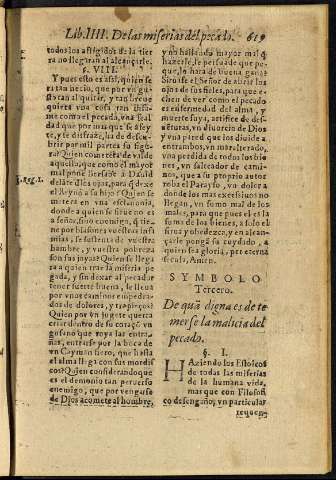 Lib. IIII. De las miserias del pecado. 619
todos los afligidos de la tier
ra no llegaran al alcançarle.
§. VIII.
Y pues esto es assi, quien se
ra tan necio, que por vn gu
sto tan al quitar, y ligero
quiera vna cosa tan
como el pecado, vna feal
dad que por mas que se afey
te, y se disfraze, ha de descu
brir por mil partes su figu-
ra? Quien cometera de valde
aquello, que como el mayor
mal pone Bersabe a Dauid
delãte los ojos, para q̃ dexe
1. Reg. 1.
el Reyno a su hijo? Quien se
metera en vna esclauonia,
donde a quien se sirue no es a
señor, sino enemigo, q̃ tie-
ne por blasones vuestras in
mias, se sustenta de vuestra
hambre, y vuestra pobreza
son sus joyas? Quien se llega
ra a quien trae la miseria pe
gada, y sin dexar al pecador
tener suerte buena, le llueua
por vnos caños empedra-
dos de dolores, y trapiços?
Quien por vn juguete querra
criar dentro de su coraçõ vn
gusano que roya las entra-
ñas, entrarse por la boca de
vn Cayman fiero, que hasta
el alma llega con sus mordis
cos? Quien considerando que
es el demonio tan peruerso
enemigo, que por vengarse
de Dios acomete al hombre,
y no hallando mayor mal q̃
hazerle, le persuade que pe-
que, lo hara de buena gana?
Siruase el Señor de abrir los
ojos a sus fieles, para que ech
en de ver como el pecado es
enfermedad del alma, y
muerte suya, artifice de des-
uenturas, vn diuorcio de Dios
y vna pared que los diuide a
entrambos, vn mar alterado,
vna perdida de todos los bie
nes, vn salteador de cami-
nos, que a su proprio autor
roba el Parayso, vn dolor a
donde los mas excessiuos no
llegan, vn sumo mal de los
males, para que pues el es la
suma de los bienes, a solo el
sirua y obedezca, y en al-
çançarle pongã su cuydado, a
quien sea gloria, per eterna
secula, Amen.
SYMBOLO
Tercero.
De quã digna es de te
merse la malicia del
pecado.
§. I.
HAziendo los Estoicos
de todas las miserias
de la humana vida,
mas que con Filosofi
co desengaño, vn particular